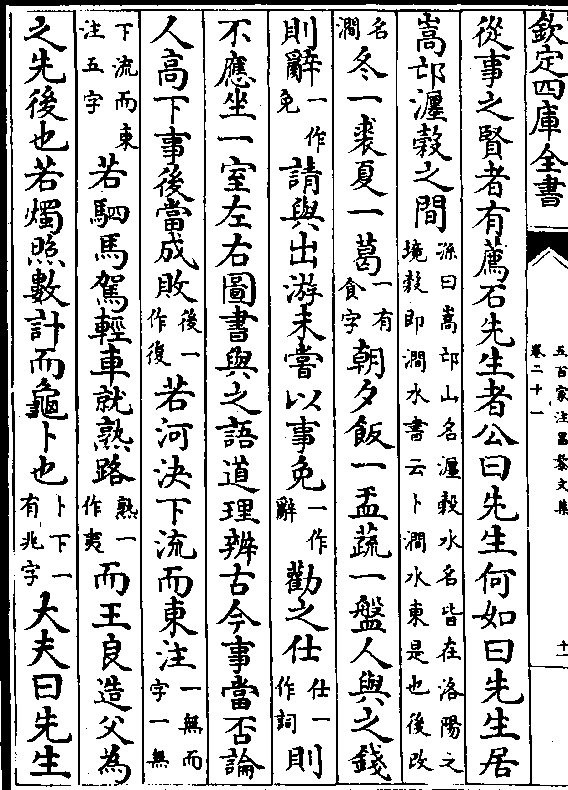 欽定四庫全書
五百家注昌黎文集
卷二十一
十一
從事之賢者有薦石先生者公曰先生何如曰先生居
嵩邙瀍穀之間孫曰嵩邙山名瀍穀水名皆在洛陽之境穀即澗水書云卜澗水東是也後改
名澗冬一裘夏一葛一有食字朝夕飯一盂蔬一盤人與之錢
則辭一作免請與出游未嘗以事免一作辭勸之仕仕一作詞則
不應坐一室左右圖書與之語道理辨古今事當否論
人高下事後當成敗後一作復若河決下流而東注一無而字一無
下流而東注五字若駟馬駕輕車就熟路熟一作夷而王良造父為
之先後也若燭照數計而龜卜也卜下一有兆字大夫曰先生